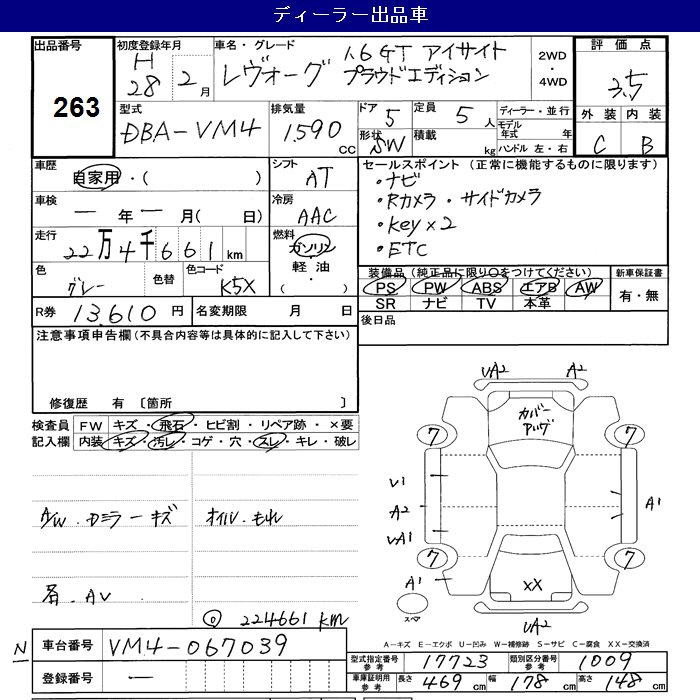 ディーラー出品車
出品番号 263
初度登録年月 H 28 2月
車名・グレード レヴォーグ 1.6GT アイサイト プラウドエディション
2WD・4WD
評価点 3.5
外装 内装
C B
型式 DBA-VM4
排気量 1590 cc
ドア 5 形状 SW
定員 5人
積載 kg
ディーラー・並行
モデル年式 年
ハンドル 左・右
車歴 自家用・( )
シフト AT
車検 ー年ー月( 日)
冷房 AAC
走行 22万4千661km
燃料 ガソリン・軽油・( )
色 グレー 色替 色コード K5X
R券 13,610円 名変期限 月 日
セールスポイント (正常に機能するものに限ります)
・ナビ
・Rカメラ・サイドカメラ
・key×2
・ETC
装備品(純正品に限り○をつけてください)
PS PW ABS エアB AW
SR ナビ TV 本革
新車保証書 有・無
後日品
注意事項申告欄(不具合内容等は具体的に記入して下さい)
修復歴 有 〔箇所 〕
検査員記入欄
FW キズ・飛石・ヒビ割・リペア跡・×要
内装 キズ・汚レ・コゲ・穴・スレ・キレ・破レ
A/W.カミラーキズ
オイル.もれ
AV
224661 km
UA2 A2
カバー
7 7
V1
A2
UA1
A1
7 7
A1
XX
スペア
UA2
A-キズ E-エクボ U-凹み W-補修跡 S-サビ C-腐食 XX-交換済
N
車台番号 VM4-067039
登録番号 ー
型式指定番号 参考 17723
類別区分番号 参考 1009
車庫証明用 参考 長さ 469cm 幅 178cm 高さ 148cm